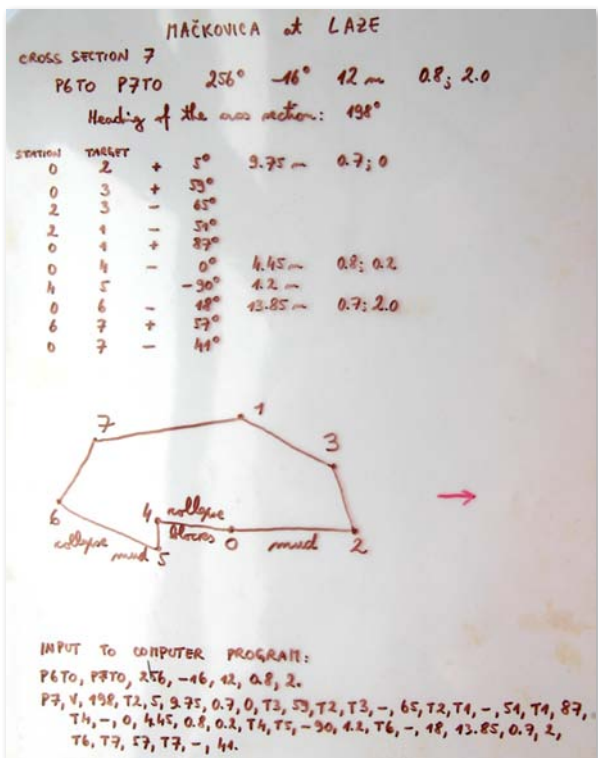 MAČKOVICA at LAZE
CROSS SECTION 7
P6TO P7TO 256° -16° 12 m 0.8; 2.0
Heading of the cross section: 198°
STATION TARGET
0 2 + 5° 9.75 m 0.7; 0
0 3 + 59°
2 3 - 65°
2 1 - 51°
0 1 + 87°
0 4 - 0° 4.45 m 0.8; 0.2
4 5 -90° 1.2 m
0 6 - 18° 13.85 m 0.7; 2.0
6 7 + 57°
0 7 - 41°
1
7
3
6
4 collapse
blocks
0 mud 2
collapse mud 5
INPUT TO COMPUTER PROGRAM:
P6TO, P7TO, 256, -16, 12, 0.8, 2.
P7, V, 198, T2, 5, 9.75, 0.7, 0, T3, 59, T2, T3, -, 65, T2, T1, -, 51, T1, 87,
T4, -, 0, 4.45, 0.8, 0.2, T4, T5, -90, 1.2, T6, -, 18, 13.85, 0.7, 2,
T6, T7, 57, T7, -, 41.